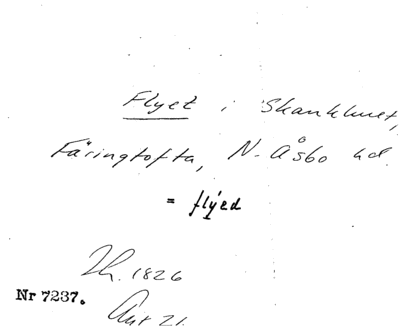 Flyet i Skankhuset,
Färingtofta, N. Åsbo hd.
= flyed
Th. 1826
Nr 7237.
Ant 21.